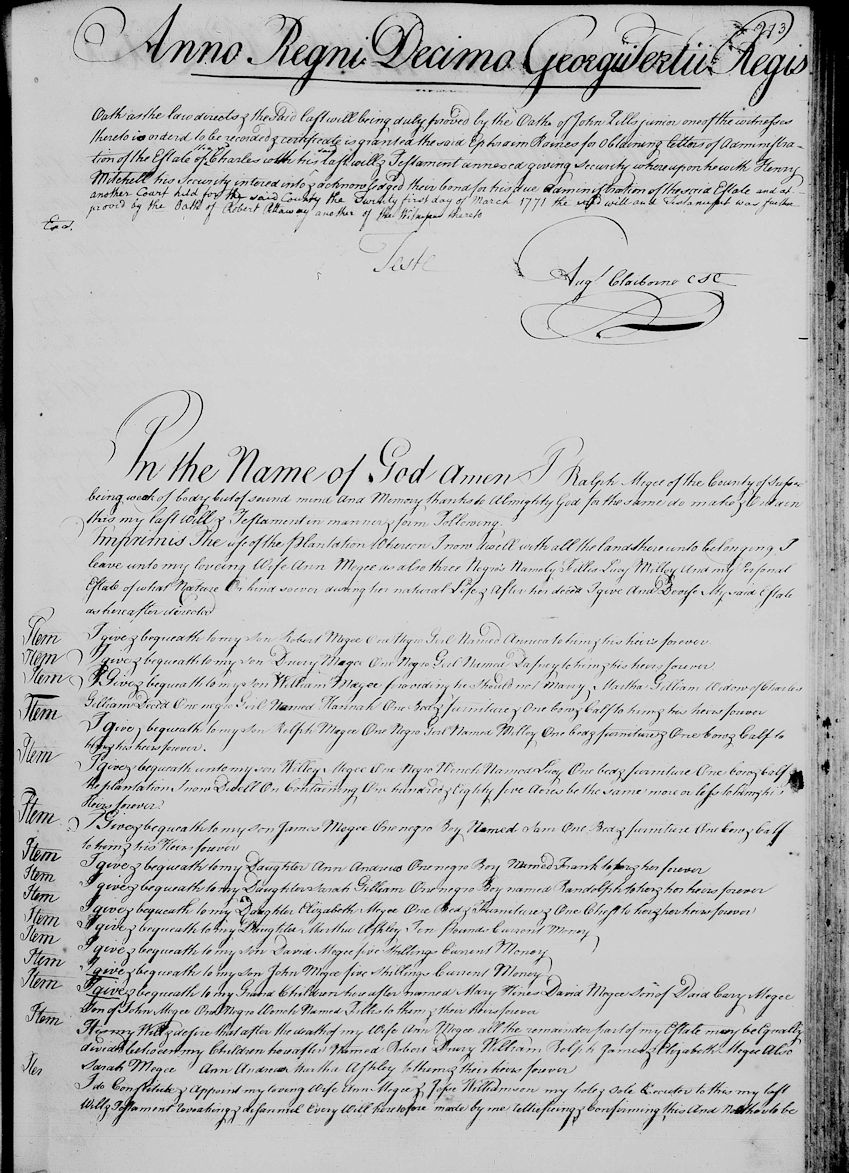 243
Anno Regni Decimo Georgii Tertii Regis
Oath as the law directs & the said last will being duly proved by the Oath of John Lills junior one of the witnesses
thereto is orderd to be recorded & certificate is granted the said Ephraim Raines for Obtaining letters of Administra-
tion of the Estate of the sd Charles with his said last will & Testament annexed giving security whereupon he with Henry
Mitchell his Security intered into & acknowledged their bond for his due Administration of the said Estate and at
another Court held for the said County the Twenty first day of March 1771 the said will and Testament was further
proved by the Oath of Robert another of the Witnesses thereto
Exd.
Teste
Augt Claiborne CSC
In the Name of God Amen I Ralph Megee of the County of Sussex
being weak of body but of sound mind And Memory thanks to Almighty God for the same do make & Ordain
this my last Will & Testament in manner & form Following
Imprimis The use of the plantation Whereon I now dwell with all the land there unto belonging I
leave unto my loveing Wife Ann Megee as also three Negro's Namely Lillis Lucy Milley And my Personal
Estate of what Nature Or kind soever during her natural Life & After her deced I give And Devise My said Estate
as hereafter directed
Item I give & bequeath to my Son Robert Megee One Negro Girl Named Annica to him & his heirs forever
Item I give & bequeath to my Son Drury Megee One Negro Girl Named Dafney to him & his heirs forever
Item I Give & bequeath to my Son William Megee providing he Should not Marry Martha Gilliam Widow of Charles
Gilliam Decd One negro Girl Named Hannah One Bed & furniture & One cow & calf to him & his heirs forever
Item I give & bequeath to my Son Ralph Megee One Negro Girl Named Milley One bed & furniture & One cow & calf to
him & his heirs forever.
Item I give & bequeath unto my son Megee One Negro Wench Named Lucy One bed & furniture One cow & calf
the plantation I now Dwell On Containing One hundred & Eighty five Acres be the same more or less to him & his
Heirs forever
Item I Give & bequeath to my Son James Megee One negro Boy Named Sam One Bed & furniture One cow & calf
to him & his Heirs forever
Item I give & bequeath to my Daughter Ann Andrews One negro Boy Named Frank to her forever
Item I give & bequeath to my Daughter Sarah Gilliam One negro Boy named Randolph to her & her heirs forever
Item I give & bequeath to my Daughter Elizabeth Megee One Bed & Furniture & One Chest to her & her heirs forever
Item I give & bequeath to my Daughter Martha Ashley Ten Pounds Current Money
Item I give & bequeath to my Son David Megee five Shillings Current Money
Item I give & bequeath to my Son John Megee five Shillings Current Money
Item I give & bequeath to my Grand Children here after named Mary Hines David Megee Son of David Cary Megee
Son of John Megee One Negro Wench Named Lillis to them & their heirs forever
Item It is my Will & desire that after the death of my Wife Ann Megee all the remainder part of my Estate may be Equally
divided between my Children hereafter Named Robert Drury William Ralph James & Elizabeth Megee Also
Sarah Megee Ann Andrews Martha Ashley to them & their heirs forever
Item I do Constitute & Appoint my loving Wife Ann Megee & Williamson my hole & Sole Executor to this my last
Will & Testament Revoaking & disannul Every Will heretofore made by me & Confirming this And No other to be